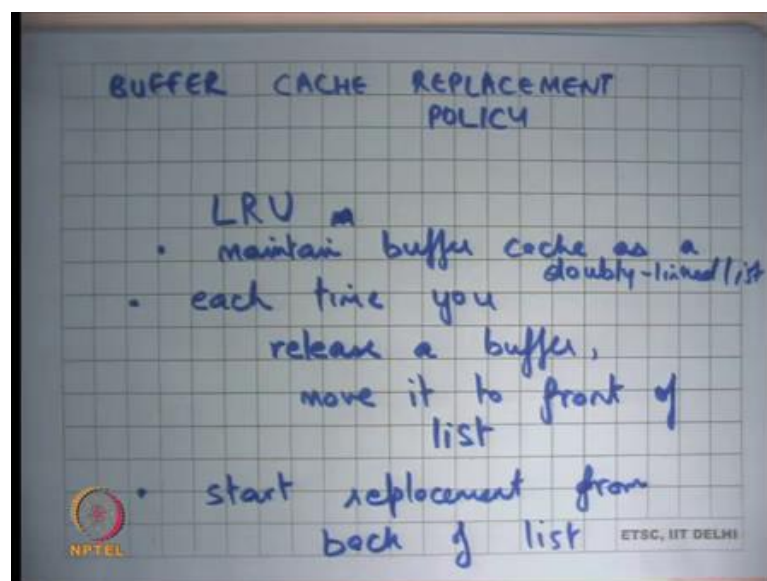 BUFFER CACHE REPLACEMENT
POLICY
LRU
• maintain buffer cache as a
doubly-linked list
• each time you
release a buffer,
move it to front of
list
• start replacement from
back of list
NPTEL
ETSC, IIT DELHI